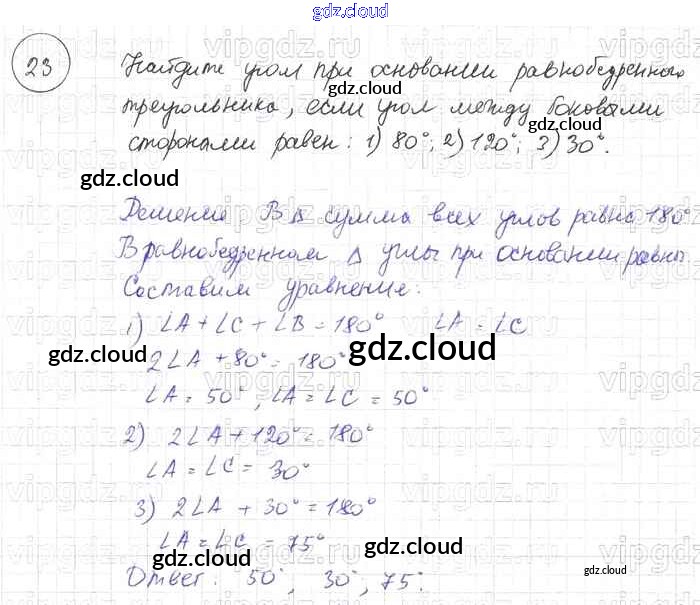 gdz.cloud
23
Найдите угол при основании равнобедренного
треугольника, если угол между боковыми
сторонами равен: 1) 80°; 2) 120°; 3) 30°.
gdz.cloud
gdz.cloud
Решение В Δ сумма всех углов равна 180°
В равнобедренном Δ углы при основании равны.
Составим уравнение:
gdz.cloud
1) ∠A + ∠C + ∠B = 180° ∠A = ∠C
gdz.cloud gdz.cloud
2∠A + 80° = 180°
∠A = 50°, ∠A = ∠C = 50°
2) 2∠A + 120° = 180°
∠A = ∠C = 30°
gdz.cloud
3) 2∠A + 30° = 180°
∠A = ∠C = 75°
gdz.cloud gdz.cloud
Ответ: 50°, 30°, 75°.
gdz.cloud